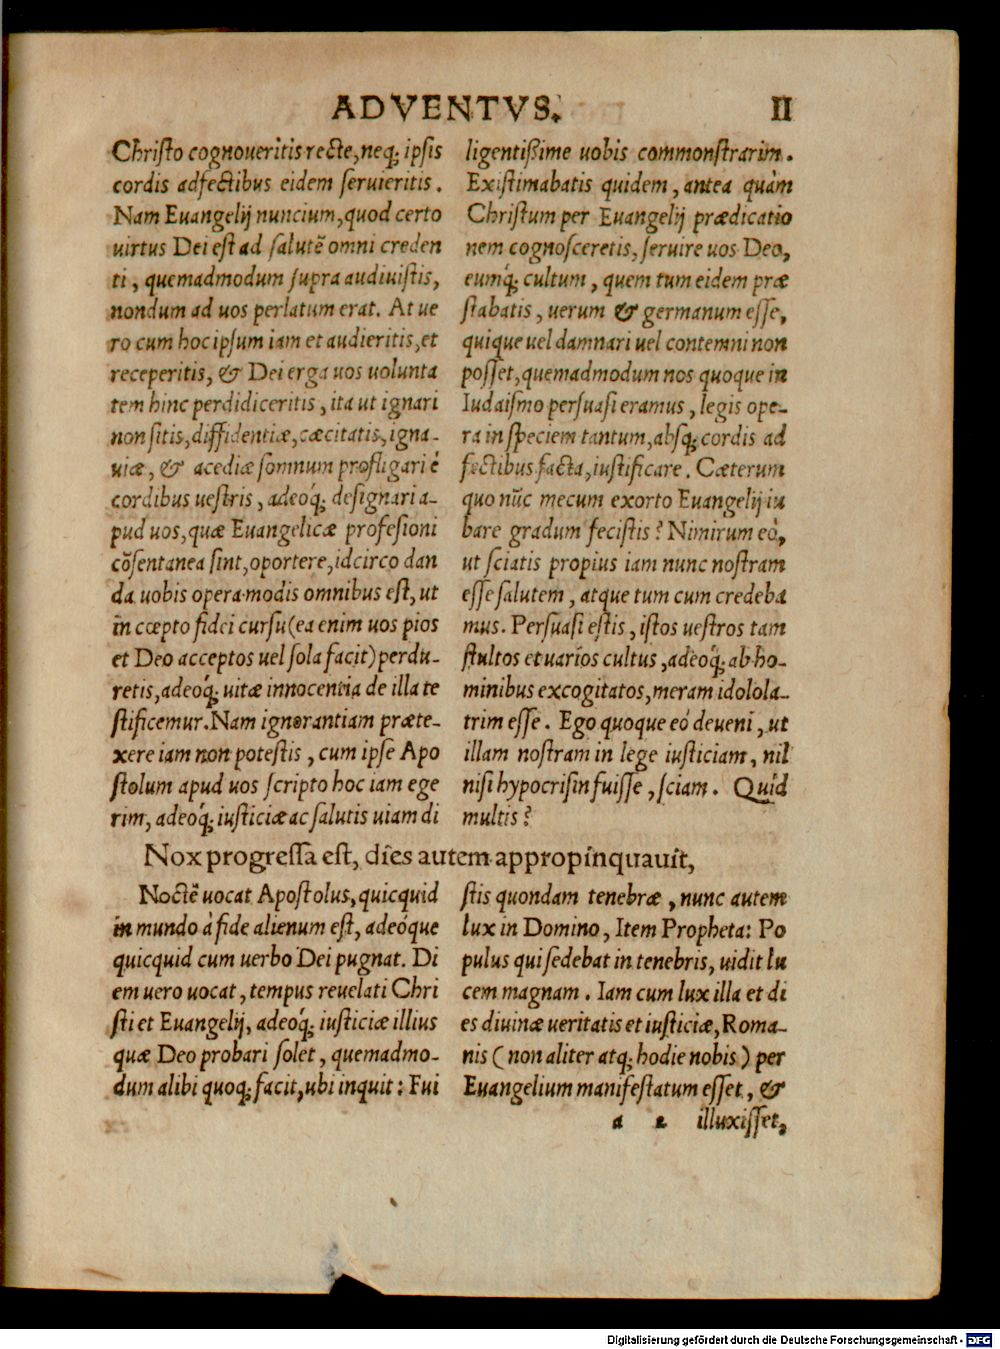 ADVENTVS. II
Christo cognoueritis recte, neq; ipsis
cordis adfectibus eidem seruieritis.
Nam Euangelij nuncium, quod certo
uirtus Dei est ad salutē omni creden
ti, quemadmodum supra audiuistis,
nondum ad uos perlatum erat. At ue
ro cum hoc ipsum iam et audieritis, et
receperitis, & Dei erga uos uolunta
tem hinc perdidiceritis, ita ut ignari
non sitis, diffidentiæ, cæcitatis, igna-
uiæ, & acediæ somnum profligari è
cordibus uestris, adeoq́; designari a-
pud uos, quæ Euangelicæ profesioni
cōsentanea sint, oportere, idcirco dan
da uobis opera modis omnibus est, ut
in cœpto fidei cursu (ea enim uos pios
et Deo acceptos uel sola facit) perdu-
retis, adeoq́; uitæ innocentia de illa te
stificemur. Nam ignorantiam præte-
xere iam non potestis, cum ipse Apo
stolum apud uos scripto hoc iam ege
rim, adeoq́; iusticiæ ac salutis uiam di
ligentißime uobis commonstrarim.
Existimabatis quidem, antea quàm
Christum per Euangelij prædicatio
nem cognosceretis, seruire uos Deo,
eumq́; cultum, quem tum eidem præ
stabatis, uerum & germanum esse,
quique uel damnari uel contemni non
posset, quemadmodum nos quoque in
Iudaismo persuasi eramus, legis ope-
ra in speciem tantum, absq; cordis ad
fectibus facta, iustificare. Cæterum
quo nūc mecum exorto Euangelij iu
bare gradum fecistis? Nimirum eò,
ut sciatis propius iam nunc nostram
esse salutem, atque tum cum credeba
mus. Persuasi estis, istos uestros tam
stultos et uarios cultus, adeoq́; ab ho-
minibus excogitatos, meram idolola-
trim esse. Ego quoque eò deueni, ut
illam nostram in lege iusticiam, nil
nisi hypocrisin fuisse, sciam. Quid
multis?
Nox progressa est, dies autem appropinquauit,
Noctē uocat Apostolus, quicquid
in mundo à fide alienum est, adeóque
quicquid cum uerbo Dei pugnat. Di
em uero uocat, tempus reuelati Chri
sti et Euangelij, adeoq́; iusticiæ illius
quæ Deo probari solet, quemadmo-
dum alibi quoq; facit, ubi inquit: Fui
stis quondam tenebræ, nunc autem
lux in Domino, Item Propheta: Po
pulus qui sedebat in tenebris, uidit lu
cem magnam. Iam cum lux illa et di
es diuinæ ueritatis et iusticiæ, Roma-
nis (non aliter atq; hodie nobis) per
Euangelium manifestatum esset, &
a 2 illuxisset,
Digitalisierung gefördert durch die Deutsche Forschungsgemeinschaft - DFG